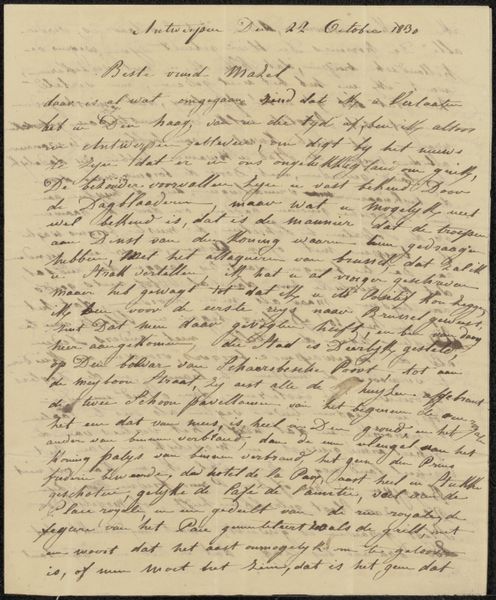 Antwerpen Den 22 October 1830
Beste vrind Mazel
daar is al wat omgegaan zind dat ik u verlaaten
heb in Den Haag, van die tyd af, ben ik altoos
in Antwerpen gebleeven, om digt by het nieuws
te zyn dat er in ons ongelukkig land om
De byzondere voorvallen zyn u vast bekend Door
de Dagblaaderen, maar wat u mogelyk niet
wel bekend is, dat is de manier dat de troepen
aan Dinst van den Koning waaren hun gedraagen
hebben, Met het attaqueren van brussel, dat zal ik
u Strak vertellen, ik had u al vroeger geschreeven
maar het gewagt tot dat ik u iets Positif kon zeggen
ik ben voor de eerste reys naar Brussel geweest,
sint Dat men daar gevogten heeft, en ben
hier aangekomen, die Stad is Deerlyk gesteld,
op Den bolwar van Schaerbeeksche Poort tot aan
de meyboom Straat, zyn alle de huyzen affebrant
de twee Schoon pavellionen van het beginnen de
het een dat van was, is heel in Den grond en het
ander van binnen verbrand, dan de een vleugel van het
Koning palys van binnen verbrand het geen den Prins
frederic bewoonde, das hotel de la Paix, is heel in Stukke
geschooten, gelyk de Café de l'amitié, veel van de
Place royale en een gedeelt van de rue royale, de
van het Parc
en woord dat het onmogelyk om te gelooven
is, of men moet het zien, dat is het geen dat